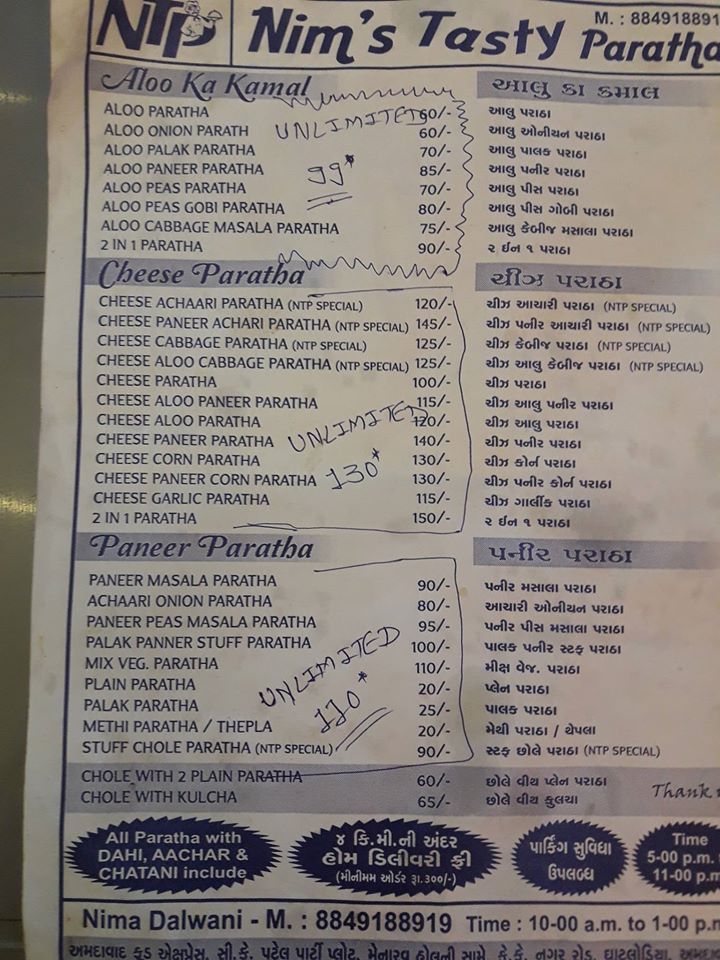 NTP Nim's Tasty Paratha
M. : 884918891
Aloo Ka Kamal આલુ કા કમાલ
ALOO PARATHA 60/- આલુ પરાઠા
UNLIMITED
ALOO ONION PARATH 60/- આલુ ઓનીયન પરાઠા
ALOO PALAK PARATHA 70/- આલુ પાલક પરાઠા
ALOO PANEER PARATHA 85/- આલુ પનીર પરાઠા
99*
ALOO PEAS PARATHA 70/- આલુ પીસ પરાઠા
ALOO PEAS GOBI PARATHA 80/- આલુ પીસ ગોબી પરાઠા
ALOO CABBAGE MASALA PARATHA 75/- આલુ કેબીજ મસાલા પરાઠા
2 IN 1 PARATHA 90/- ૨ ઈન ૧ પરાઠા
Cheese Paratha ચીઝ પરાઠા
CHEESE ACHAARI PARATHA (NTP SPECIAL) 120/- ચીઝ આચારી પરાઠા (NTP SPECIAL)
CHEESE PANEER ACHARI PARATHA (NTP SPECIAL) 145/- ચીઝ પનીર આચારી પરાઠા (NTP SPECIAL)
CHEESE CABBAGE PARATHA (NTP SPECIAL) 125/- ચીઝ કેબીજ પરાઠા (NTP SPECIAL)
CHEESE ALOO CABBAGE PARATHA (NTP SPECIAL) 125/- ચીઝ આલુ કેબીજ પરાઠા (NTP SPECIAL)
CHEESE PARATHA 100/- ચીઝ પરાઠા
CHEESE ALOO PANEER PARATHA 115/- ચીઝ આલુ પનીર પરાઠા
CHEESE ALOO PARATHA 120/- ચીઝ આલુ પરાઠા
UNLIMITED
CHEESE PANEER PARATHA 140/- ચીઝ પનીર પરાઠા
CHEESE CORN PARATHA 130/- ચીઝ કોર્ન પરાઠા
130*
CHEESE PANEER CORN PARATHA 130/- ચીઝ પનીર કોર્ન પરાઠા
CHEESE GARLIC PARATHA 115/- ચીઝ ગાર્લીક પરાઠા
2 IN 1 PARATHA 150/- ૨ ઈન ૧ પરાઠા
Paneer Paratha પનીર પરાઠા
PANEER MASALA PARATHA 90/- પનીર મસાલા પરાઠા
ACHAARI ONION PARATHA 80/- આચારી ઓનીયન પરાઠા
PANEER PEAS MASALA PARATHA 95/- પનીર પીસ મસાલા પરાઠા
PALAK PANNER STUFF PARATHA 100/- પાલક પનીર સ્ટફ પરાઠા
UNLIMITED
MIX VEG. PARATHA 110/- મીક્ષ વેજ. પરાઠા
PLAIN PARATHA 20/- પ્લેન પરાઠા
110*
PALAK PARATHA 25/- પાલક પરાઠા
METHI PARATHA / THEPLA 20/- મેથી પરાઠા / થેપલા
STUFF CHOLE PARATHA (NTP SPECIAL) 90/- સ્ટફ છોલે પરાઠા (NTP SPECIAL)
CHOLE WITH 2 PLAIN PARATHA 60/- છોલે વીથ પ્લેન પરાઠા
CHOLE WITH KULCHA 65/- છોલે વીથ કુલચા
Thank
All Paratha with
DAHI, AACHAR &
CHATANI include
૪ કિ.મી.ની અંદર
હોમ ડિલીવરી ફ્રી
(મીનીમમ ઓર્ડર રૂા.૩૦૦/-)
પાર્કિંગ સુવિધા
ઉપલબ્ધ
Time
5-00 p.m.
11-00 p.m
Nima Dalwani - M. : 8849188919 Time : 10-00 a.m. to 1-00 p.m
અમદાવાદ ફૂડ એક્ષપ્રેસ, સી.કે. પટેલ પાર્ટી પ્લોટ, મેનારવ હોલની સામે, કે.કે. નગર રોડ, ઘાટલોડિયા,